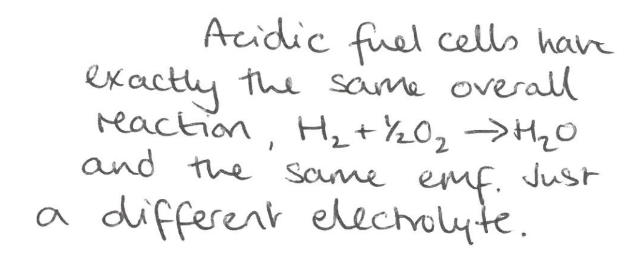 Acidic fuel cells have
exactly the same overall
reaction, H₂ + ½O₂ → H₂O
and the same emf. Just
a different electrolyte.